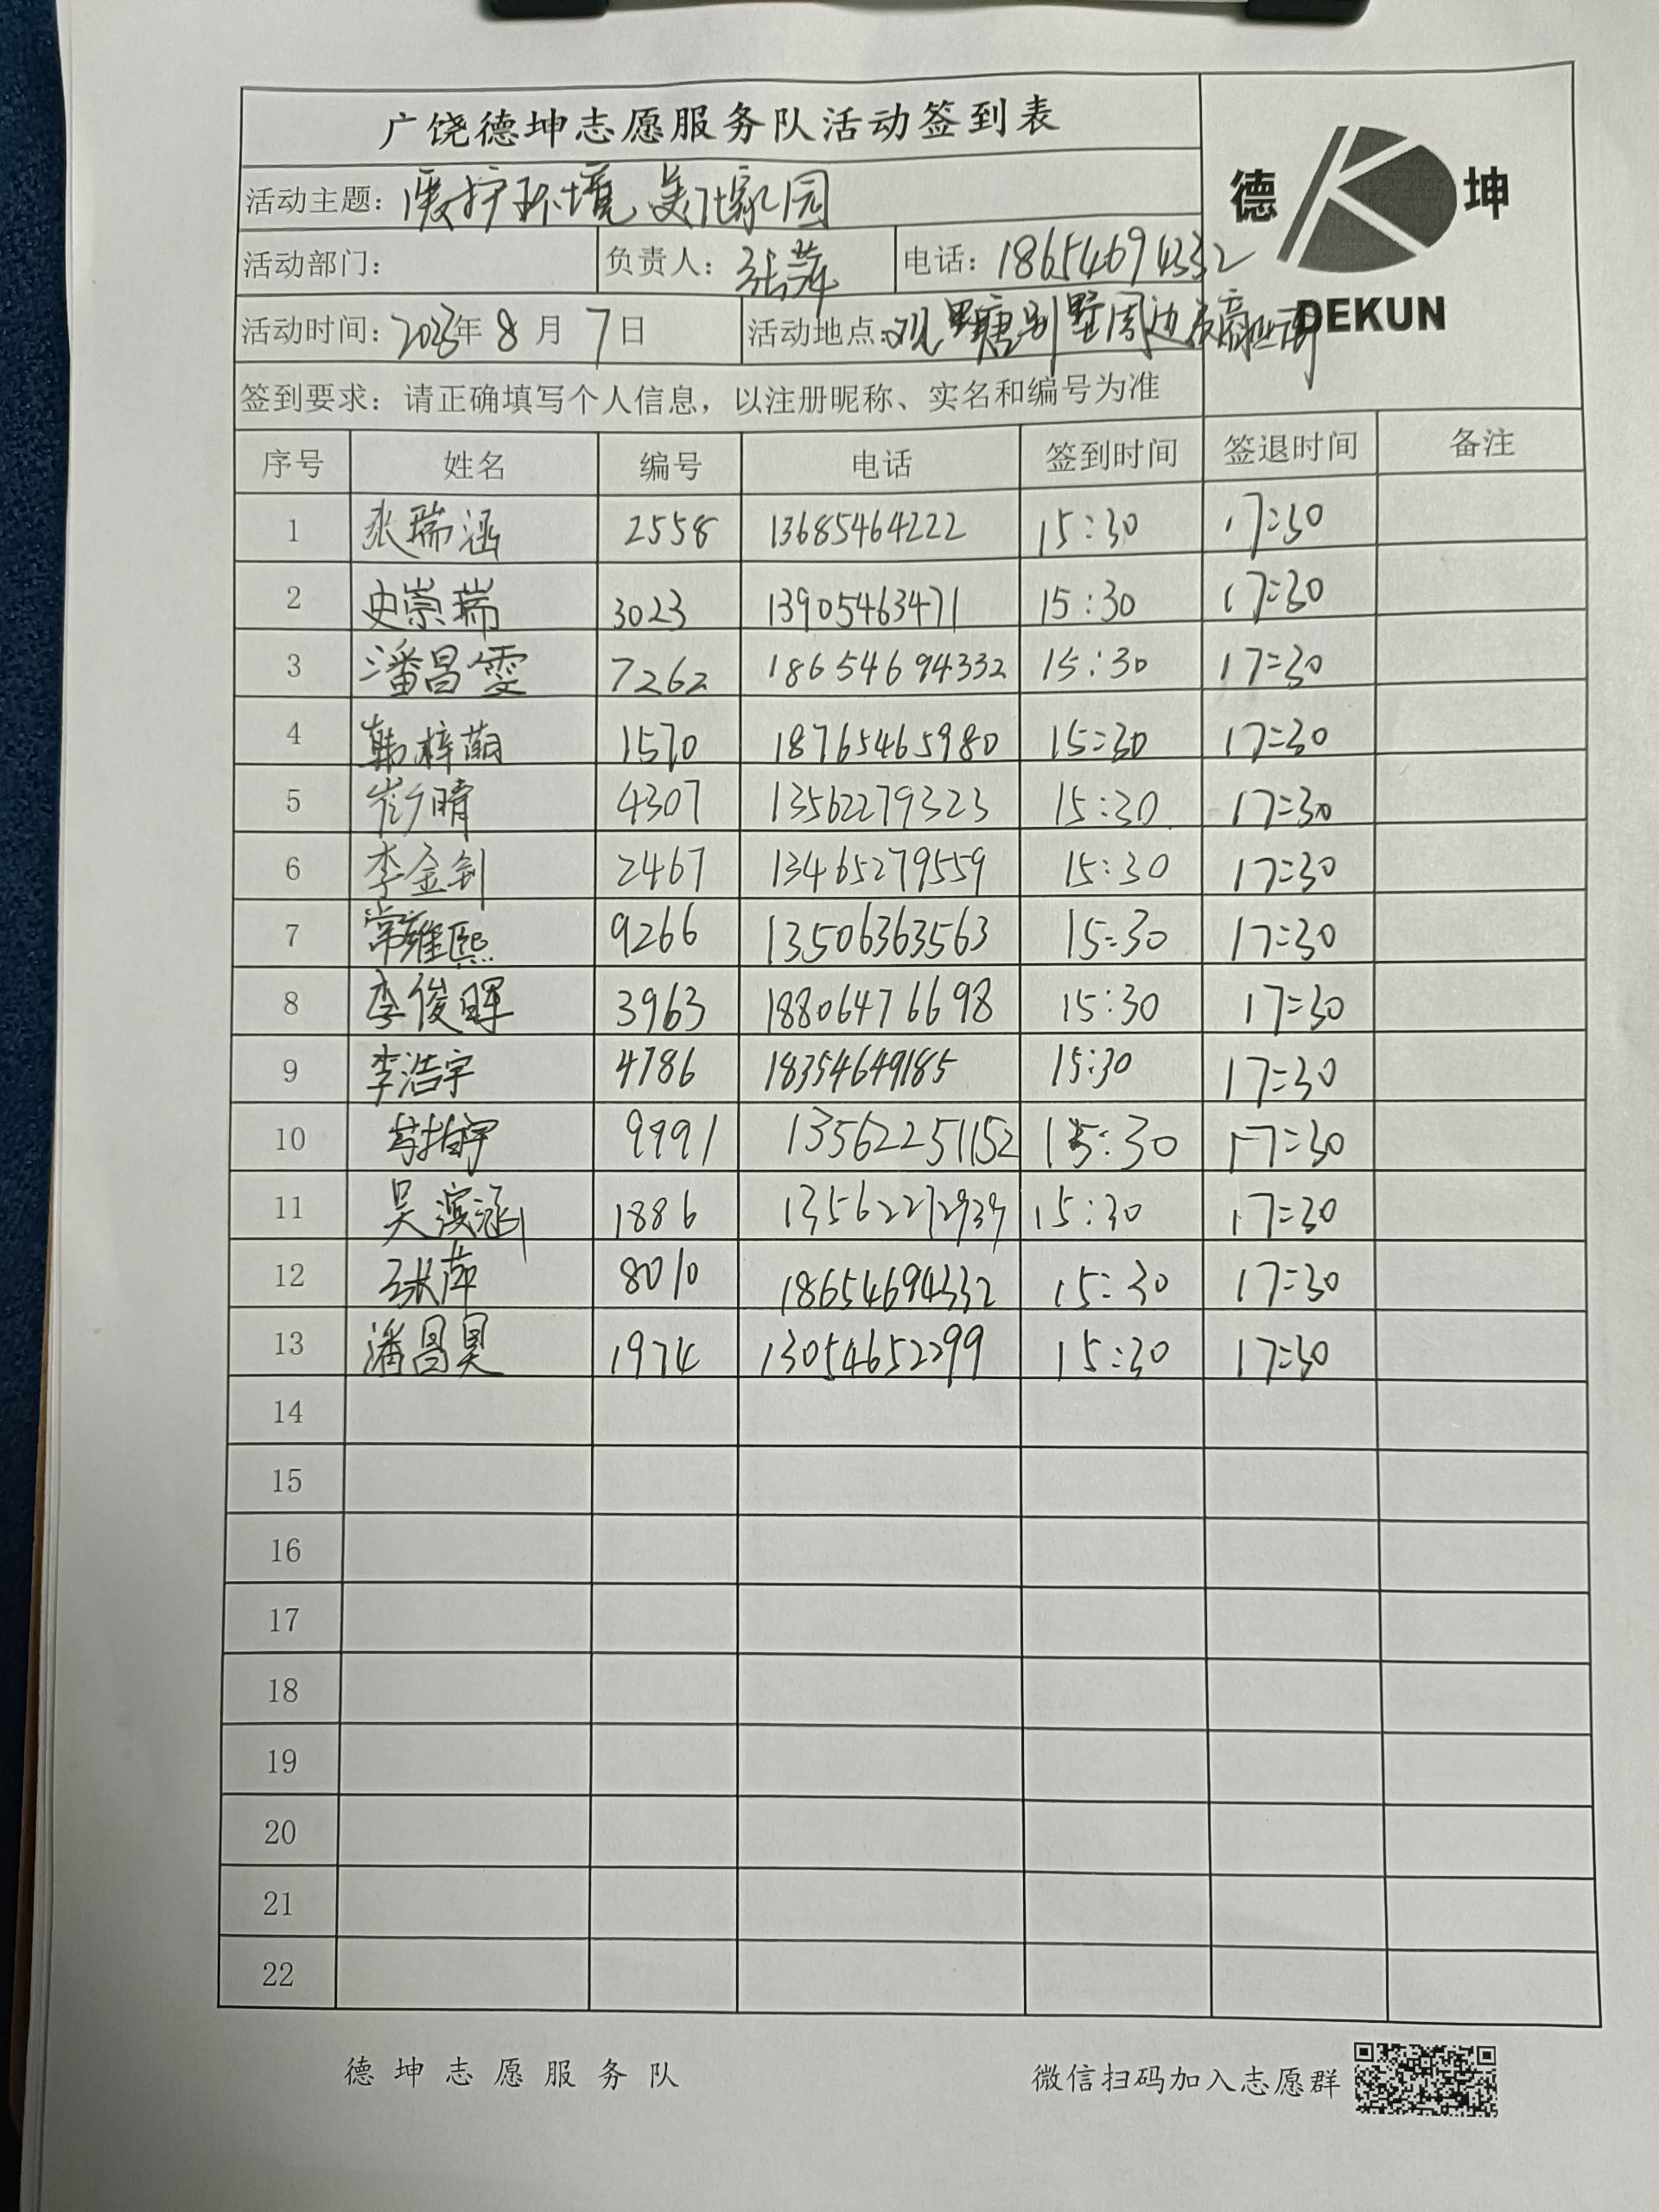 广饶德坤志愿服务队活动签到表
德 坤
DEKUN
活动主题：爱护环境 美化家园
活动部门： 负责人：张萍 电话：18654694332
活动时间：2023年8月7日 活动地点：观 塘别墅周边
签到要求：请正确填写个人信息，以注册昵称、实名和编号为准
序号 姓名 编号 电话 签到时间 签退时间 备注
1 张瑞涵 2558 13685464222 15:30 17:30
2 史崇瑞 3023 13905463471 15:30 17:30
3 潘昌雯 7262 18654694332 15:30 17:30
4 韩梓萌 1570 18765465980 15:30 17:30
5 崔晴 4307 13562279323 15:30 17:30
6 李金钊 2467 13465279559 15:30 17:30
7 常雅熙 9266 13506363563 15:30 17:30
8 李俊晖 3963 18806476698 15:30 17:30
9 李浩宇 4786 18354649185 15:30 17:30
10 9991 13562251152 15:30 17:30
11 吴滨涵 1886 15:30 17:30
12 张萍 8010 18654694332 15:30 17:30
13 潘昌昊 1974 13054652299 15:30 17:30
14
15
16
17
18
19
20
21
22
德坤志愿服务队 微信扫码加入志愿群